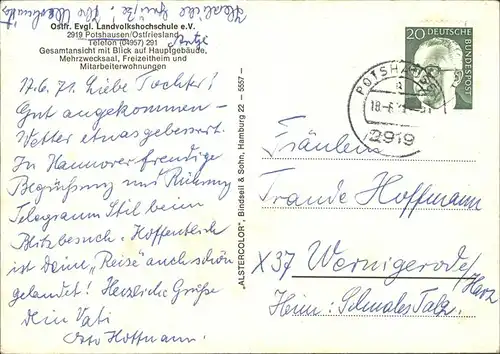 Herzliche Grüße! Ihr
Ostfr. Evgl. Landvolkshochschule e.V.
2919 Potshausen/Ostfriesland
Telefon (04957) 291
Gesamtansicht mit Blick auf Hauptgebäude,
Mehrzwecksaal, Freizeitheim und
Mitarbeiterwohnungen
17.6.71. Liebe Tochter!
Gut angekommen -
Wetter etwas gebessert.
In Hannover freudige
Begrüßung und Rührung
Telegramm Stil beim
Blitzbesuch. Hoffentlich
ist Deine „Reise" auch schön
gelandet! Herzliche Grüße
Dein Vati
Otto Hoffmann.
"ALSTERCOLOR", Bindseil & Sohn, Hamburg 22 - 5557 -
20 DEUTSCHE BUNDESPOST
POTSHAUSEN
a
2919
Fräulein
Traude Hoffmann
X37 Wernigerode/
Harz
Heim: Schmales Talz.